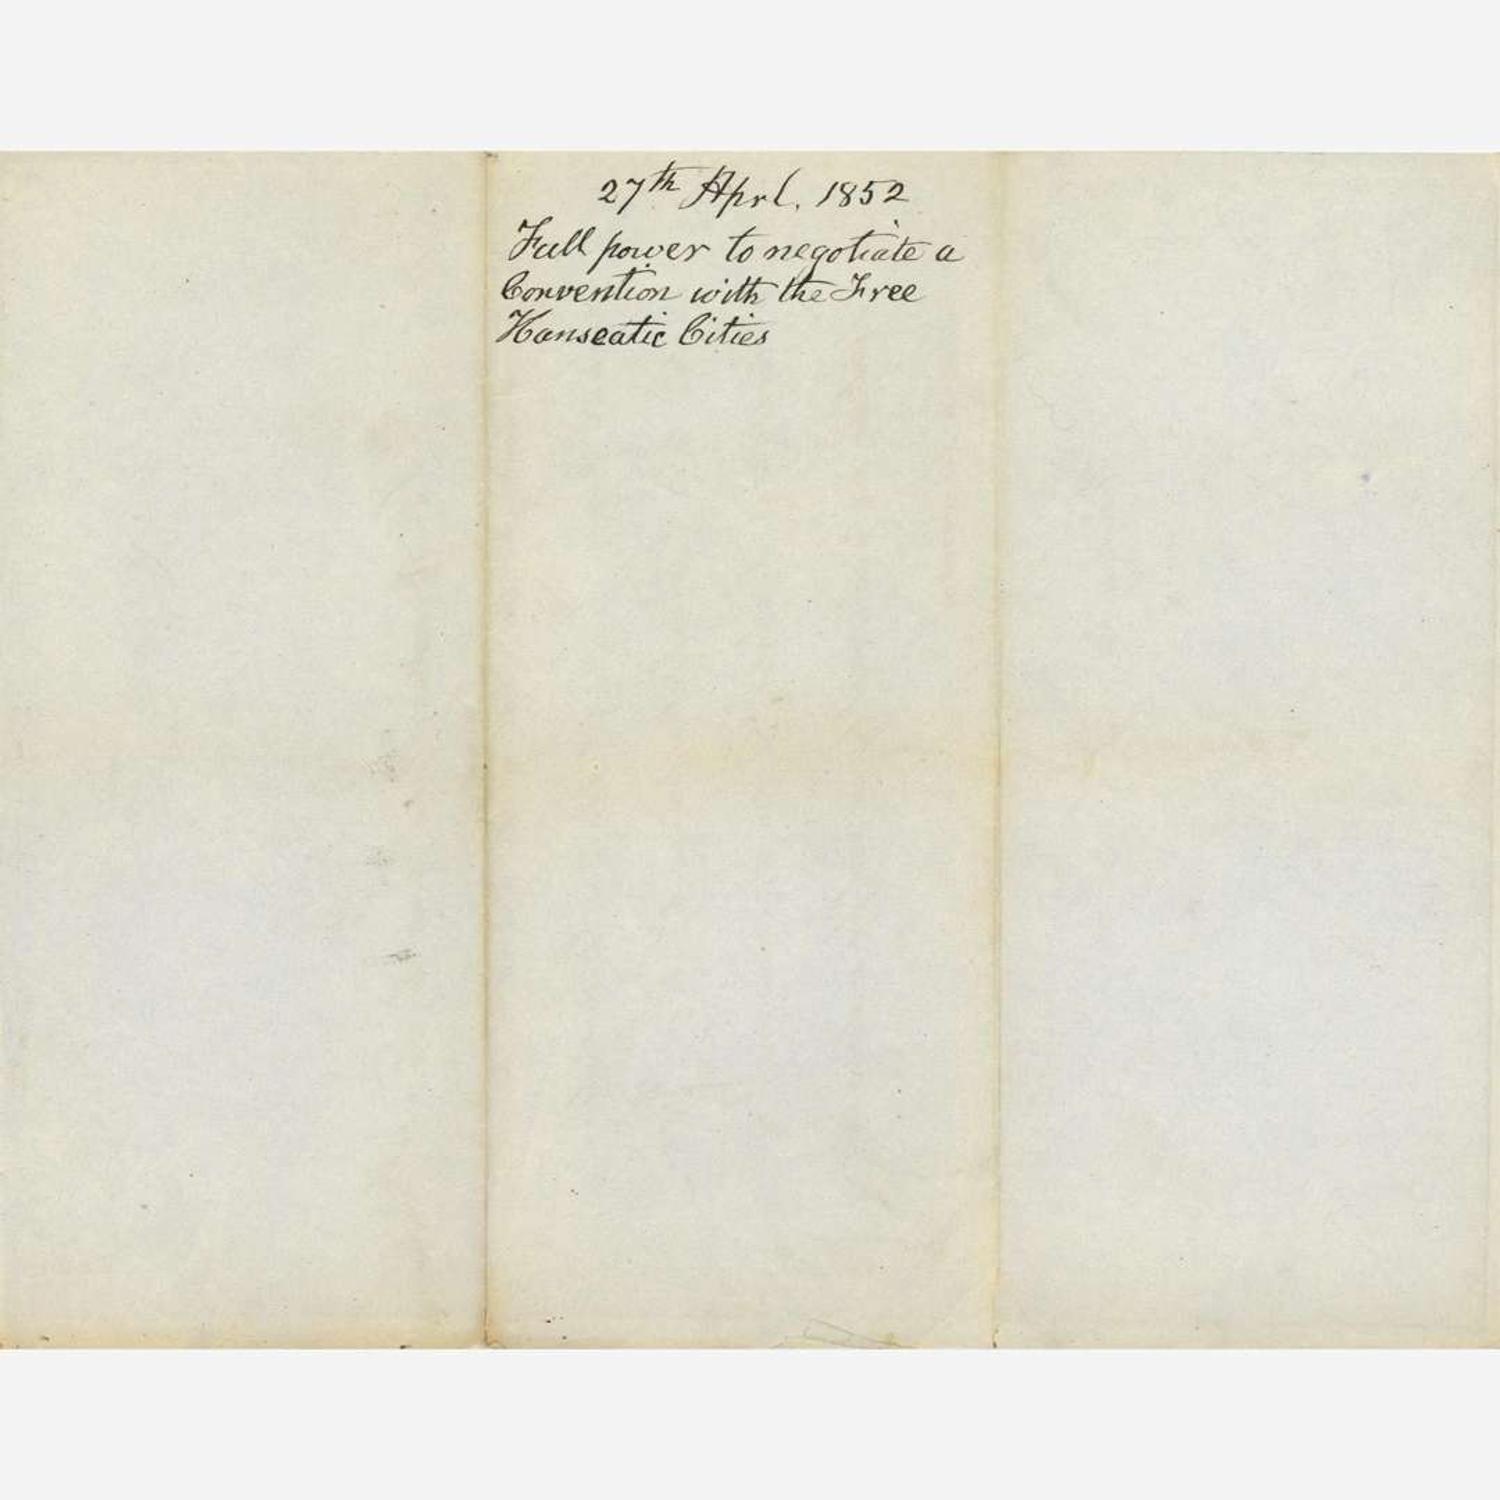 27th Aprl. 1852
Full power to negotiate a
Convention with the Free
Hanseatic Cities